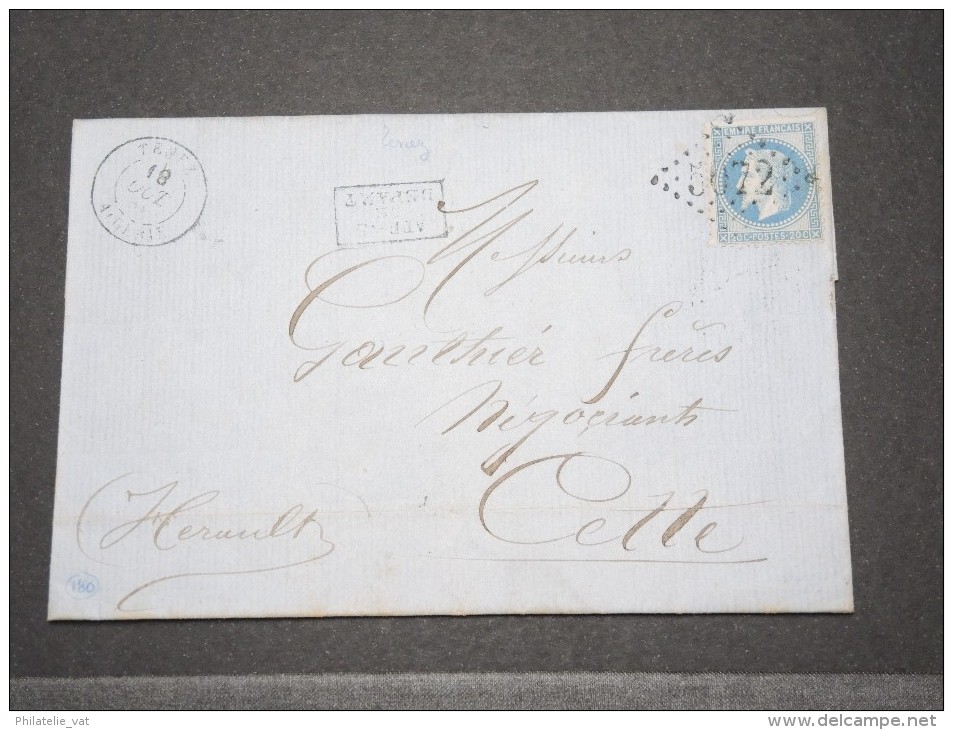 TENEZ
18
OCT
ALGERIE
Tenez
APRES
LE
DEPART
EMPIRE FRANÇAIS
20C-POSTES-20C
Messieurs
Gauthier frères
Négociants
Cette
Herault
180
Philatelie_vat
http://www.delcampe.net